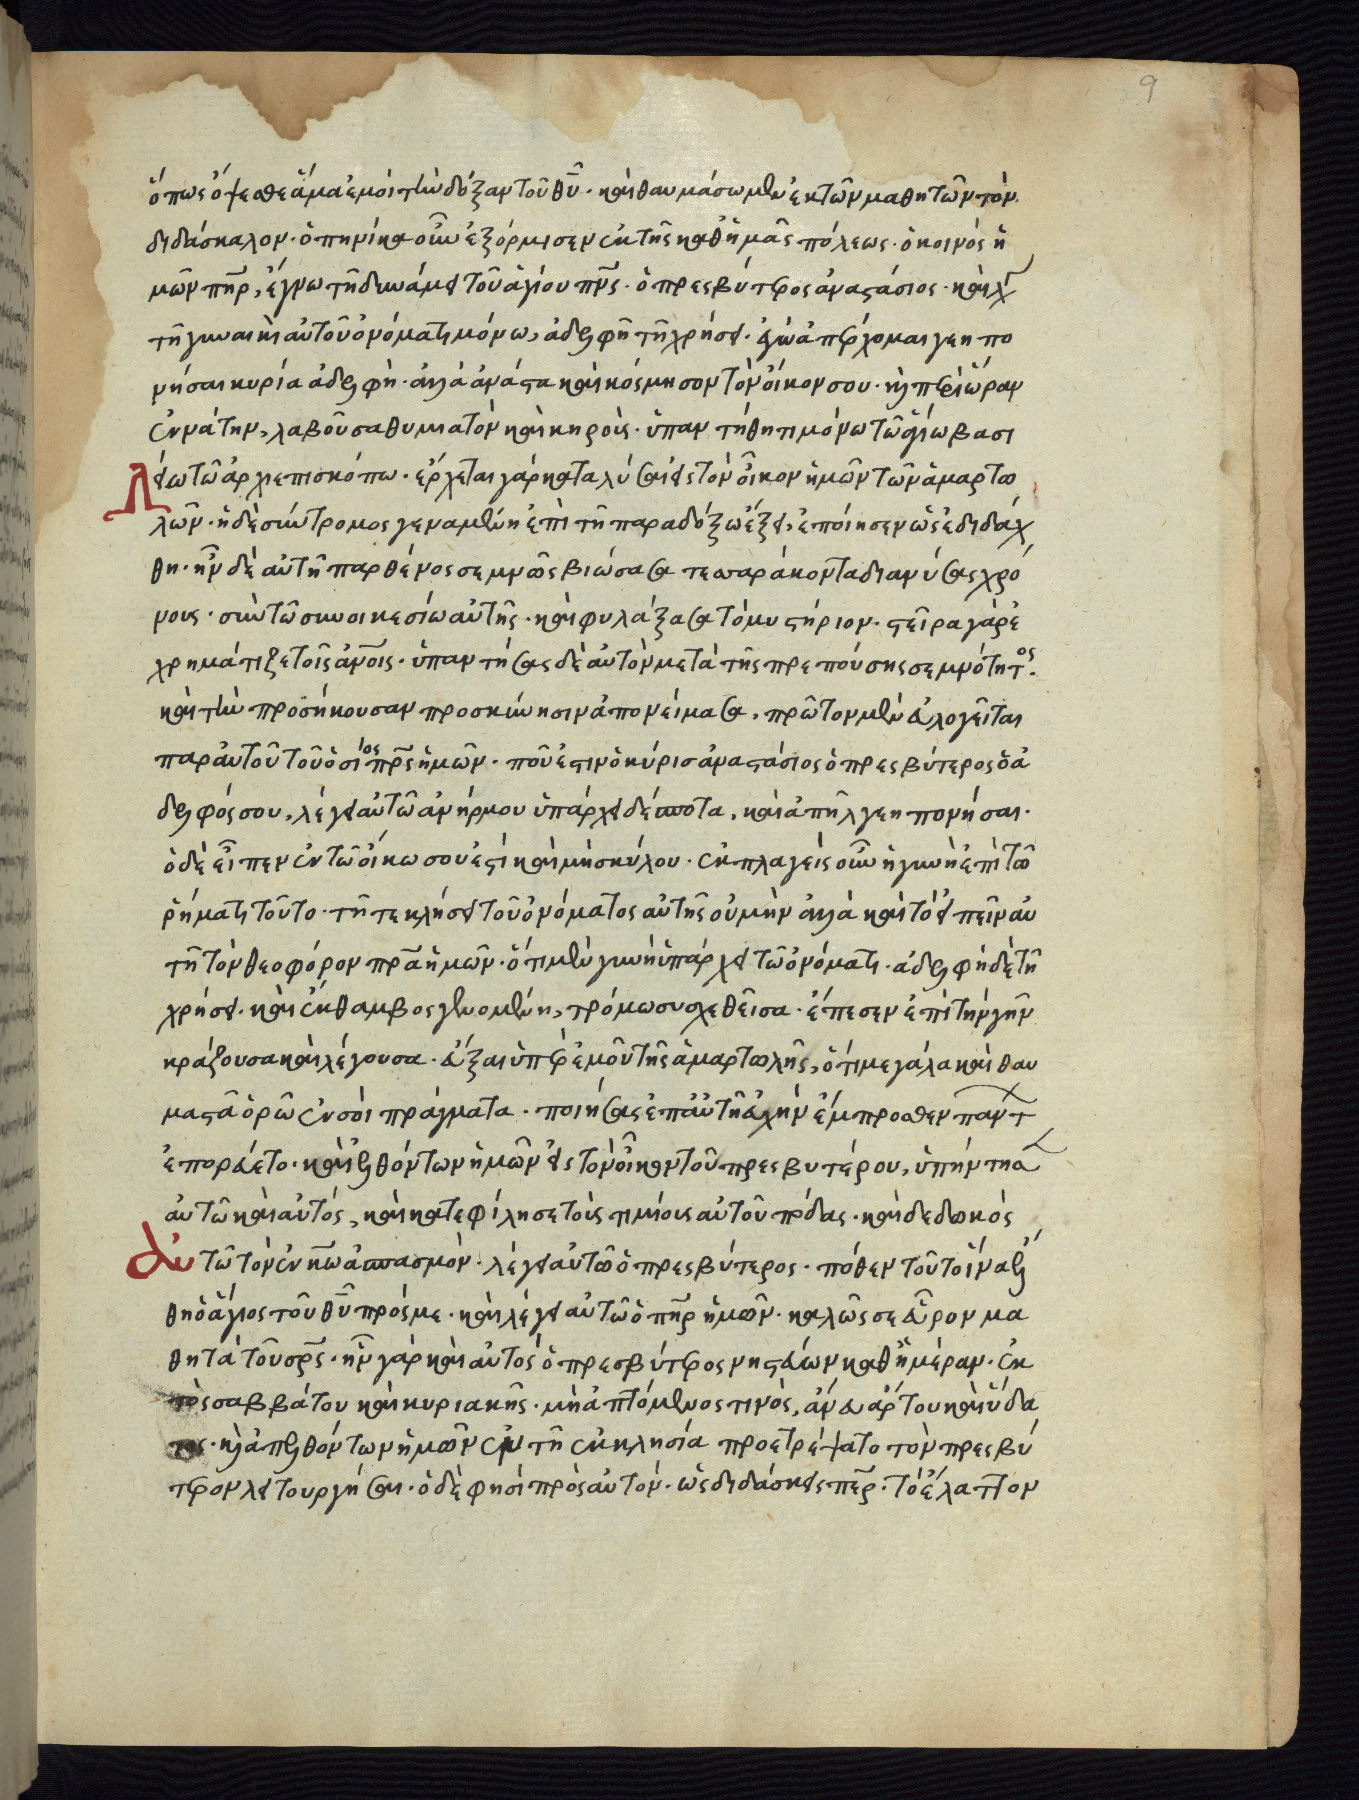 9
ὅπως ὄψεσθε ἅμα ἐμοὶ τὴν δόξαν τοῦ θῦ· καὶ θαυμάσωμεν ἐκ τῶν μαθητῶν τὸν
διδάσκαλον· ὁπηνίκα οὖν ἐξόρμισεν ἐκ τῆς καθ ἡμᾶς πόλεως· ὁ κοινὸς ἡ
μῶν πηρ, ἔγνω τῆ δυνάμει τοῦ ἁγίου πνς· ὁ πρεσβύτερος ἀναστάσιος· καὶ
τῆ γυναικὶ αὐτοῦ ὀνόματι μόνω, ἀδελφῆ τῆ χρήσει· ἐγὼ ἀπέρχομαι γεηπο
νήσαι κυρία ἀδελφή· ἀλλὰ ἀνάστα καὶ κόσμησον τὸν οἶκον σου· καὶ περὶ ὥραν
ἐννάτην, λαβοῦσα θυμιατὸν καὶ κηροὺς· ὑπαντήθητι μόνω τῶ ἁγίω βασι
λείω τῶ ἀρχιεπισκόπω· ἔρχεται γὰρ καταλύσαι εἰς τὸν οἶκον ἡμῶν τῶν ἁμαρτω
λῶν· ἡ δὲ σύντρομος γεναμένη ἐπὶ τῆ παραδόξω ἕξει, ἐποίησεν ὡς ἐδιδάχ
θη· ἦν δὲ αὐτὴ παρθένος σεμνῶς βιώσασα τεσσαράκοντα διανύσας χρό
νους· σὺν τῶ συνοικεσίω αὐτῆς· καὶ φυλάξασα τὸ μυστήριον· στεῖρα γὰρ ἐ
χρημάτιζε τοῖς ἀνοις· ὑπαντήσας δὲ αὐτὸν μετὰ τῆς πρεπούσης σεμνότητος·
καὶ τὴν προσήκουσαν προσκύνησιν ἀπονείμασα, πρῶτον μὲν εὐλογεῖται
παρ αὐτοῦ τοῦ ὁσίος πρς ἡμῶν· ποῦ ἐστιν ὁ κύρις ἀναστάσιος ὁ πρεσβύτερος ὁ ἀ
δελφός σου, λέγει αὐτῶ ἀνήρ μου ὑπάρχει δέσποτα, καὶ ἀπῆλ γεηπονήσαι·
ὁ δὲ εἶπεν ἐν τῶ οἴκω σου ἐστὶ καὶ μὴ σκύλου· ἐκπλαγεὶς οὖν ἡ γυνὴ ἐπὶ τῶ
ῥήματι τοῦτο· τῆ τε κλήσει τοῦ ὀνόματος αὐτῆς οὐ μὴν ἀλλὰ καὶ τὸ εἰπεῖν αὐ
τῆ τὸν θεοφόρον πρα ἡμῶν· ὅτι μὲν γυνὴ ὑπάρχει τῶ ὀνόματι· ἀδελφὴ δὲ τῆ
χρήσει· καὶ ἔκθαμβος γενομένη, τρόμω συσχεθεῖσα· ἔπεσεν ἐπὶ τὴν γῆν
κράζουσα καὶ λέγουσα· εὖξαι ὑπὲρ ἐμοῦ τῆς ἁμαρτωλῆς, ὅτι μεγάλα καὶ θαυ
μαστὰ ὁρῶ ἐν σοὶ πράγματα· ποιήσας ἐπ αὐτῆ εὐχὴν ἔμπροσθεν παντ
ἐπορεύετο· καὶ ἐλθόντων ἡμῶν εἰς τὸν οἶκον τοῦ πρεσβυτέρου, ὑπήντησ
αὐτῶ καὶ αὐτός, καὶ κατεφίλησε τοὺς τιμίους αὐτοῦ πόδας· καὶ δεδωκὸς
αὐτῶ τὸν ἐν κω ἀσπασμόν· λέγει αὐτῶ ὁ πρεσβύτερος· πόθεν τοῦτο ἵνα ἔλ
θη ὁ ἅγιος τοῦ θῦ πρός με· καὶ λέγει αὐτῶ ὁ πηρ ἡμῶν· καλῶς σε εὗρον μα
θητὰ τοῦ σρς· ἦν γὰρ καὶ αὐτὸς ὁ πρεσβύτερος νηστεύων καθ ἡμέραν· ἐκ
τὸς σαββάτου καὶ κυριακῆς· μὴ ἁπτόμενος τινὸς, ἄνευ ἄρτου καὶ ὕδα
τος· καὶ ἀπελθόντων ἡμῶν ἐν τῆ ἐκκλησία προετρέψατο τὸν πρεσβύ
τερον λειτουργήσαι· ὁ δέ φησὶ πρὸς αὐτόν· ὡς διδάσκεις περ· τὸ ἔλαττον